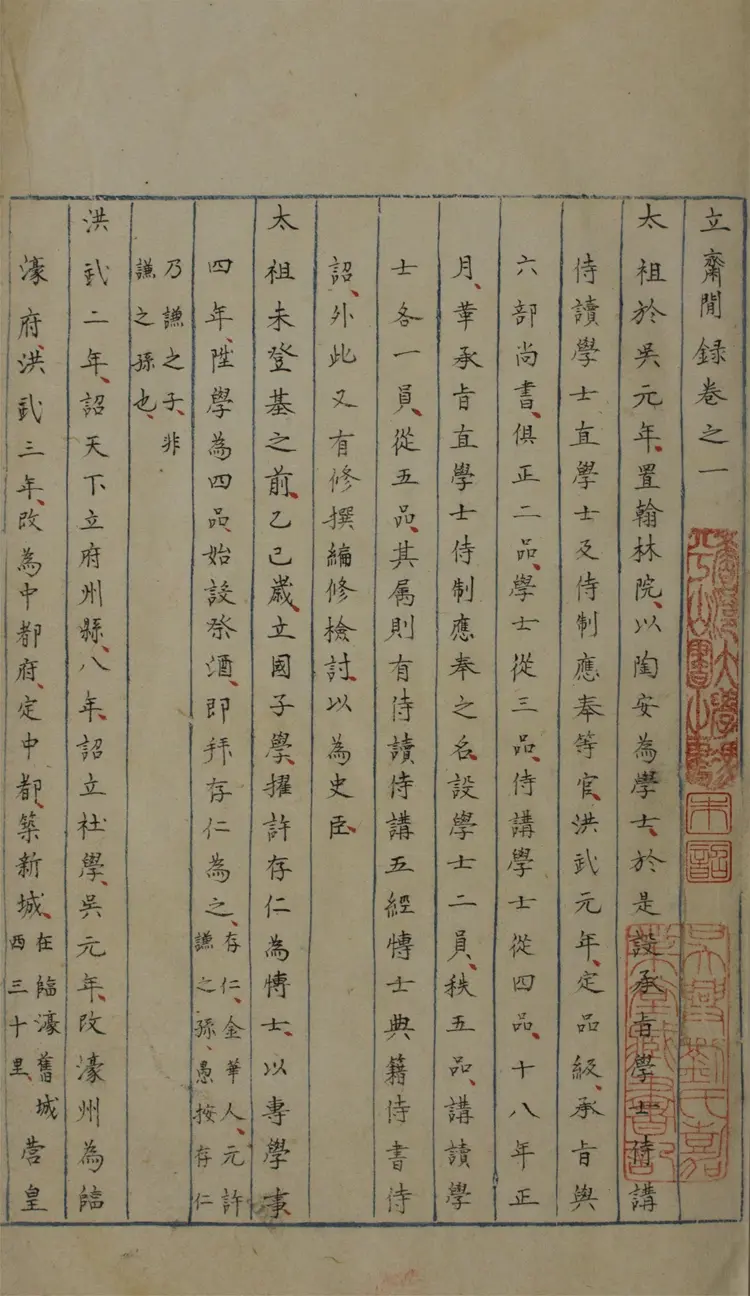 立齋閒録卷之一
太祖於吳元年、置翰林院、以陶安為學士、於是設承旨學士侍講
侍讀學士直學士及侍制應奉等官、洪武元年、定品級、承旨與
六部尚書、俱正二品、學士從三品、侍講學士從四品、十八年正
月、革承旨直學士侍制應奉之名、設學士二員、秩五品、講讀學
士各一員、從五品、其属則有侍讀侍講五經博士典籍侍書侍
詔、外此又有修撰編修檢討、以為史臣、
太祖未登基之前、乙巳歲、立國子學、擢許存仁為博士、以專學事、
四年、陞學為四品、始設祭酒、即拜存仁為之、
存仁、金華人、元許
謙之孫、愚按存仁
乃謙之子、非
謙之孫也、
洪武二年、詔天下立府州縣、八年、詔立社學、吳元年、改濠州為臨
濠府、洪武三年、改為中都府、定中都、築新城、
在臨濠舊城
西三十里、
营皇
吳興劉氏嘉
業堂藏書記